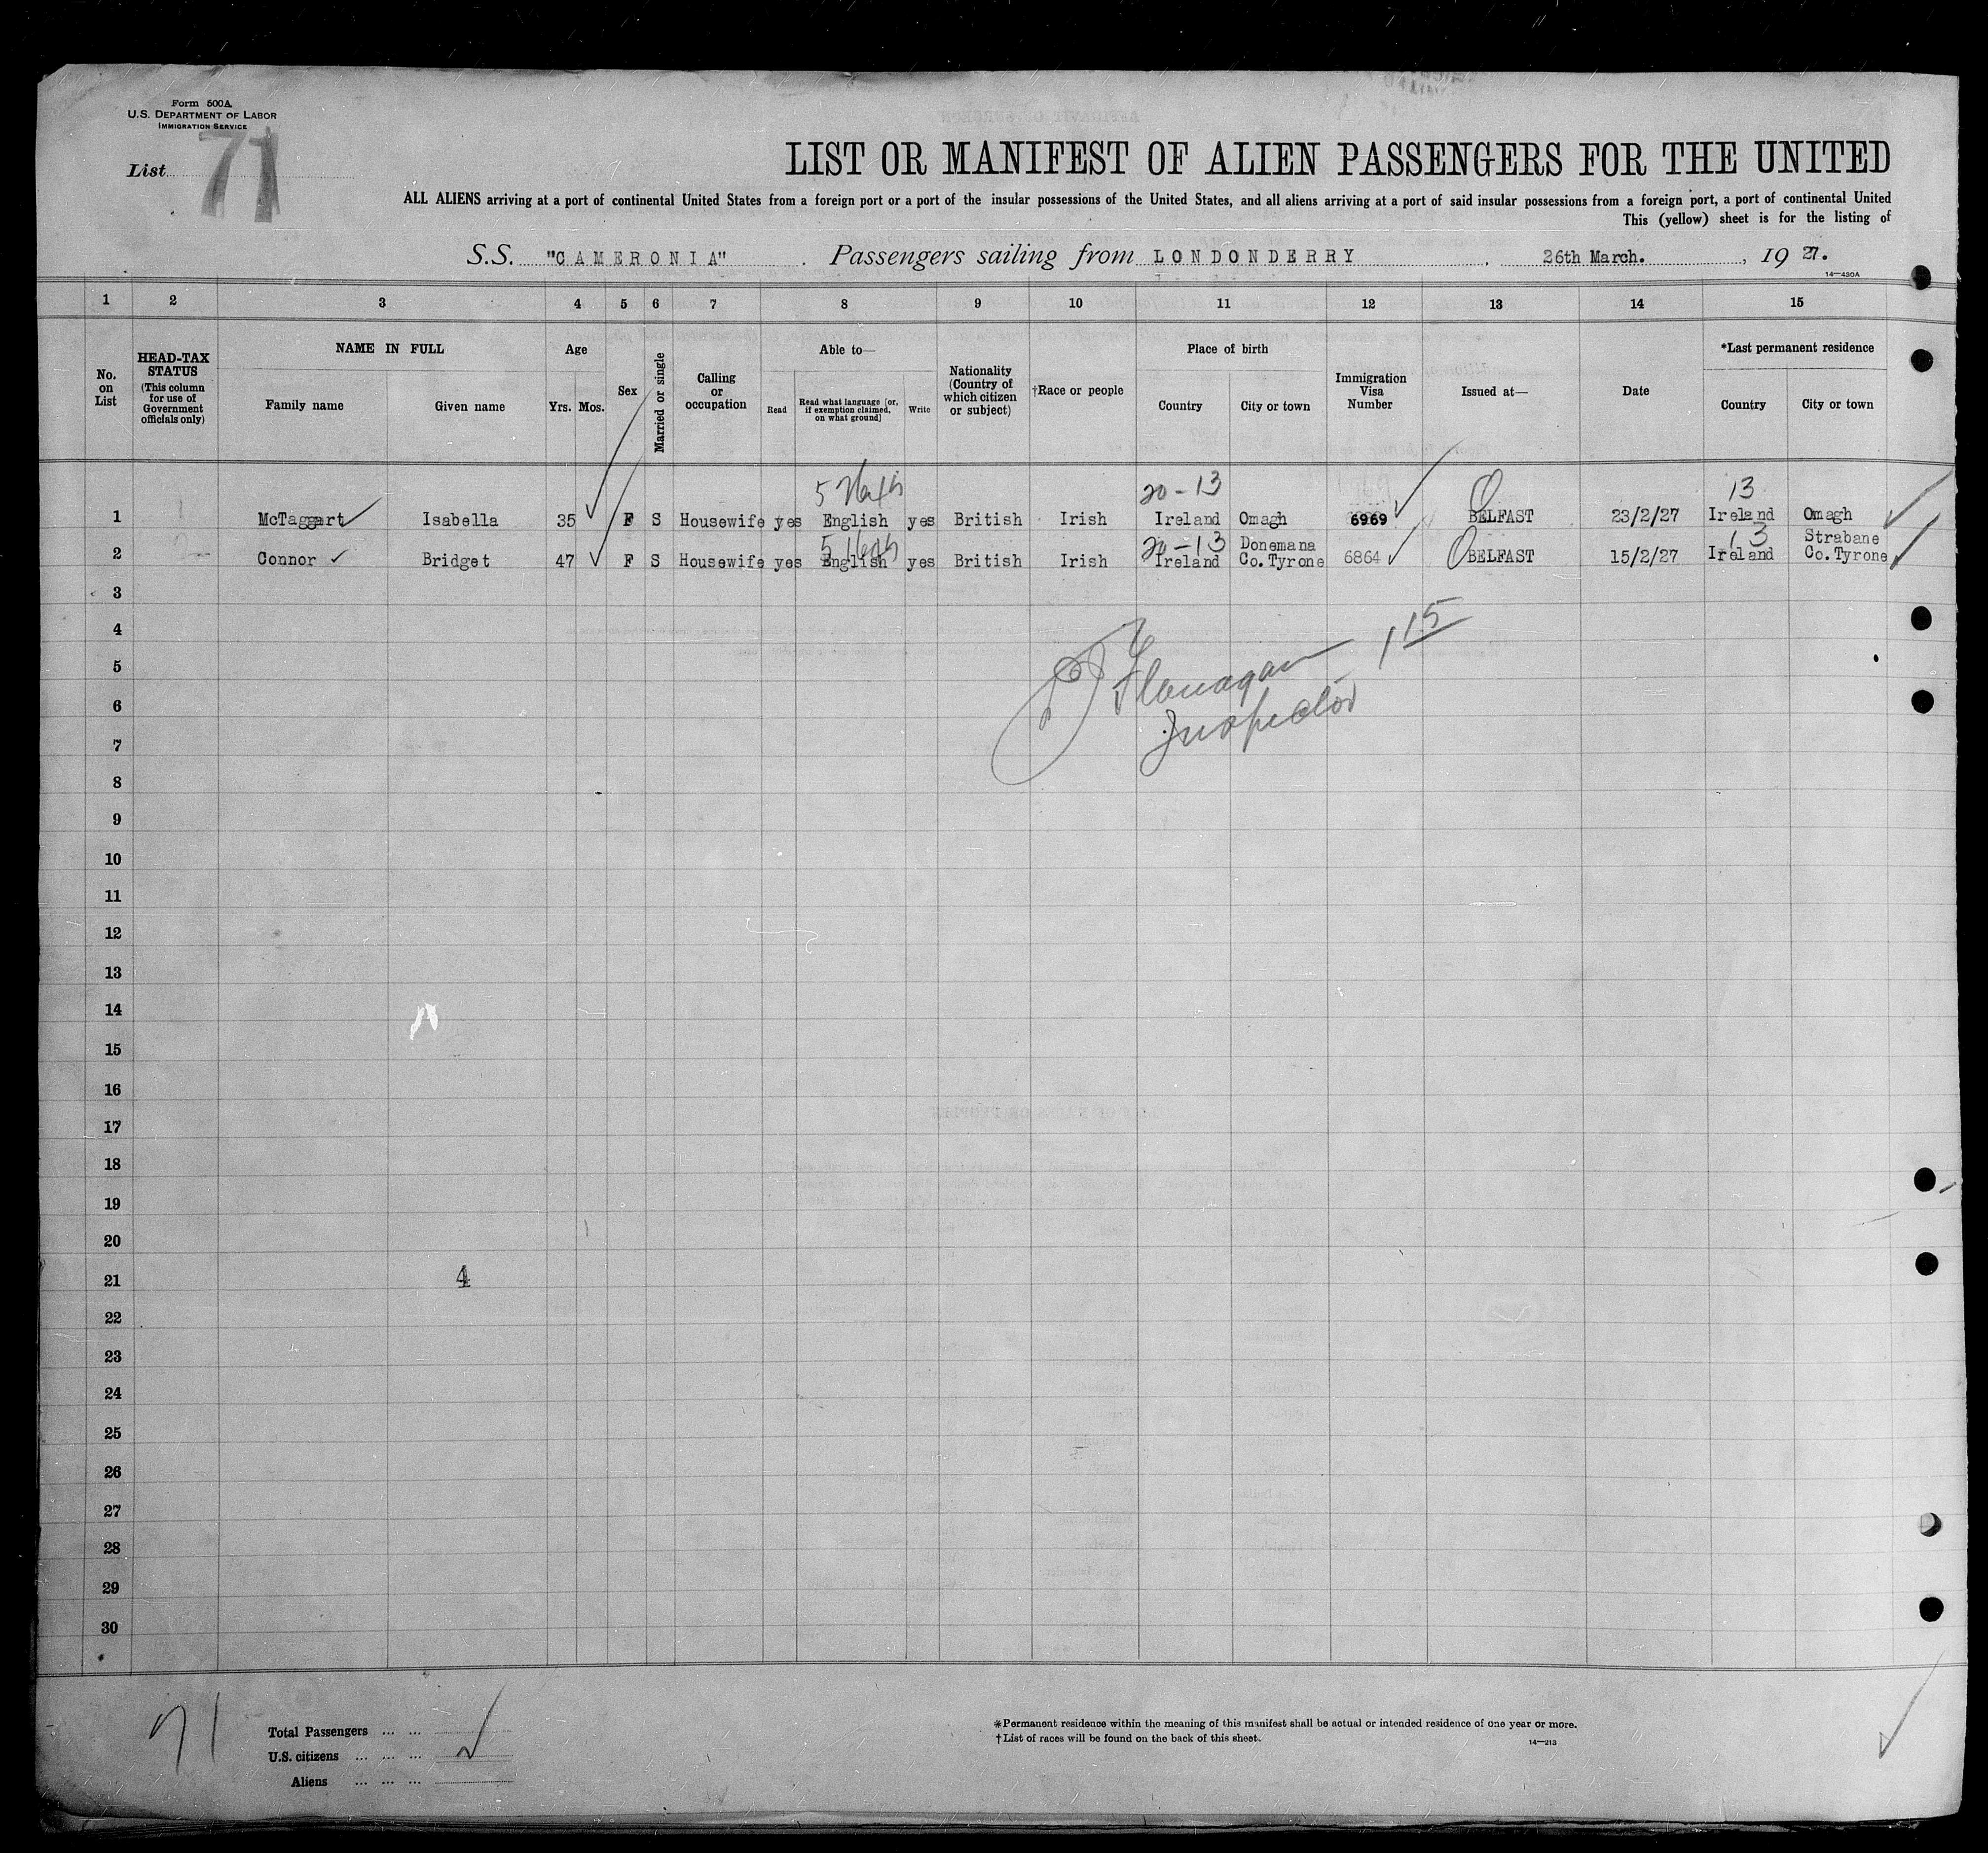 Form 500A
U.S. DEPARTMENT OF LABOR
IMMIGRATION SERVICE
List 71
LIST OR MANIFEST OF ALIEN PASSENGERS FOR THE UNITED
ALL ALIENS arriving at a port of continental United States from a foreign port or a port of the insular possessions of the United States, and all aliens arriving at a port of said insular possessions from a foreign port, a port of continental United
This (yellow) sheet is for the listing of
S.S. "CAMERONIA". Passengers sailing from LONDONDERRY, 26th March., 1927.
14—430A
1 2 3 4 5 6 7 8 9 10 11 12 13 14 15
No. on List
HEAD-TAX STATUS (This column for use of Government officials only)
NAME IN FULL
Family name Given name
Age
Yrs. Mos.
Sex
Married or single
Calling or occupation
Able to—
Read Read what language [or, if exemption claimed, on what ground] Write
Nationality (Country of which citizen or subject)
†Race or people
Place of birth
Country City or town
Immigration Visa Number
Issued at—
Date
*Last permanent residence
Country City or town
20-13 13
1 McTaggart Isabella 35 F S Housewife yes English yes British Irish Ireland Omagh 6969 BELFAST 23/2/27 Ireland Omagh
20-13 Donemana 13 Strabane
2 Connor Bridget 47 F S Housewife yes English yes British Irish Ireland Co.Tyrone 6864 BELFAST 15/2/27 Ireland Co.Tyrone
3
4
Flanagan 115
5
6
Inspector
7
8
9
10
11
12
13
14
15
16
17
18
19
20
21 4
22
23
24
25
26
27
28
29
30
71
Total Passengers ... ...
U.S. citizens ... ... ...
Aliens ... ... ...
*Permanent residence within the meaning of this manifest shall be actual or intended residence of one year or more.
†List of races will be found on the back of this sheet.
14—213